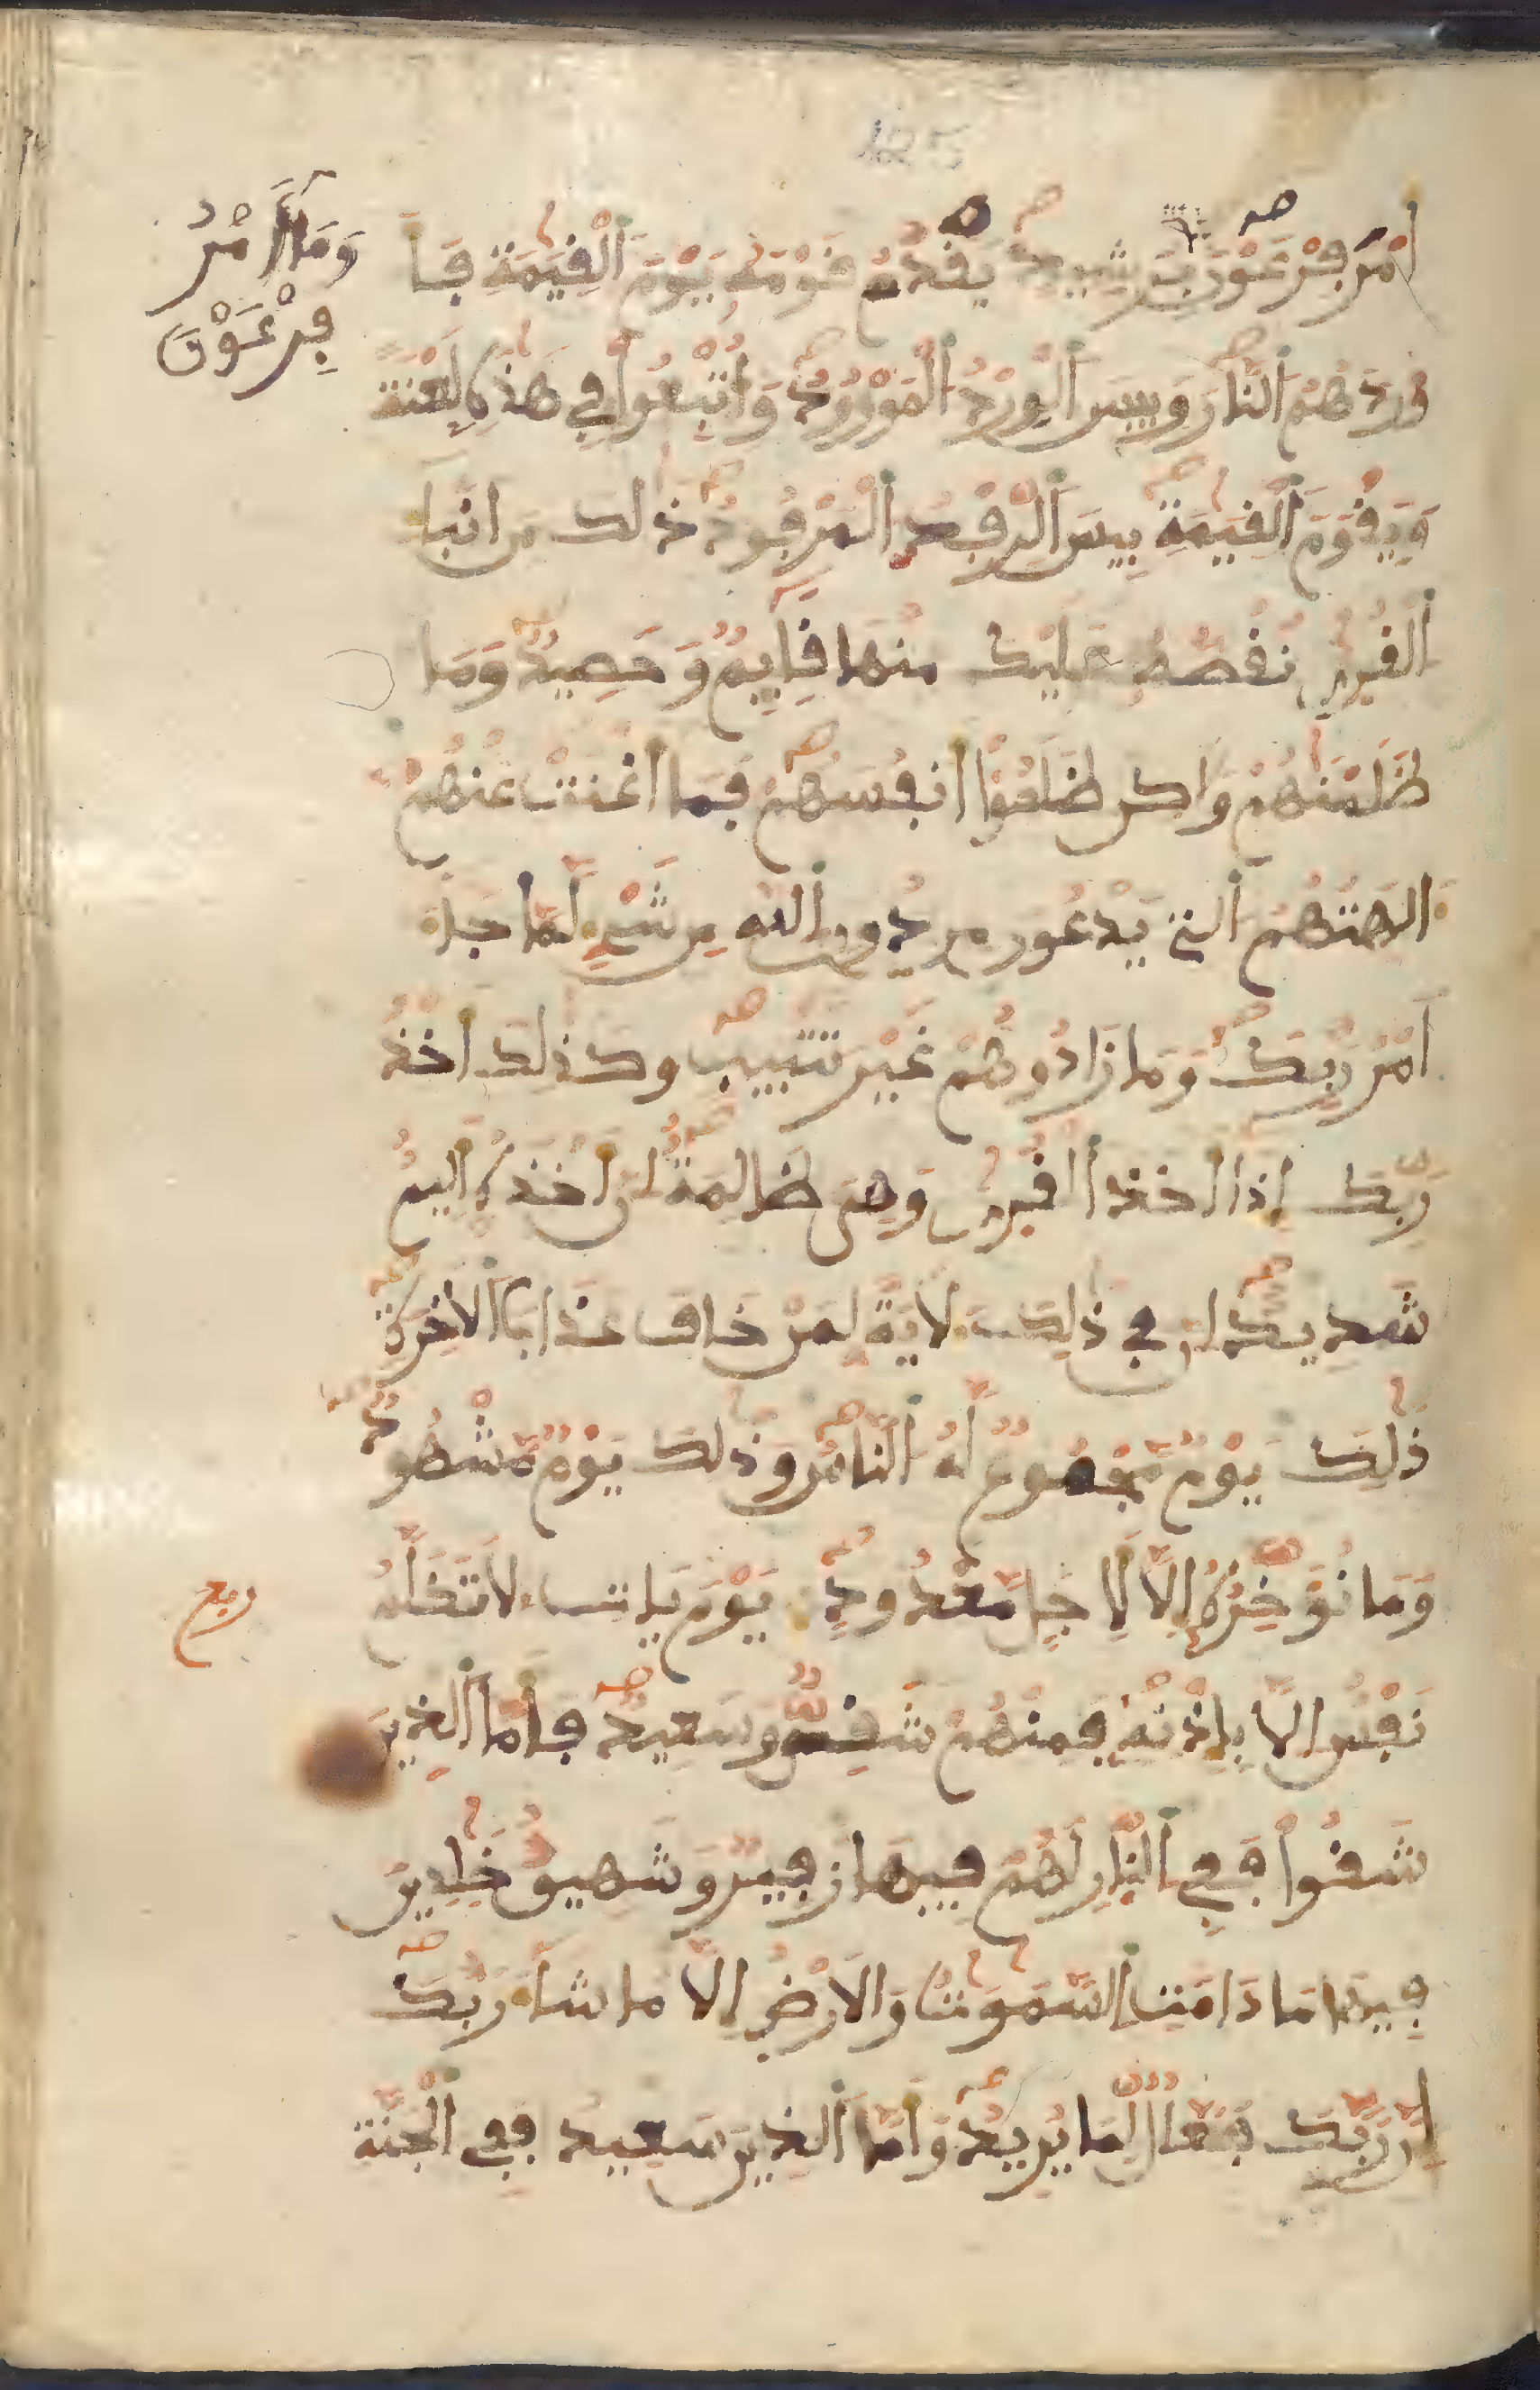 125
وَمَآ أَمْرُ
فِرْعَوْنَ
أَمْرَ فِرْعَوْنَ بِرَشِيدٍ يَقْدُمُ قَوْمَهُ يَوْمَ ٱلْقِيَمَةِ فَأَ
وْرَدَهُمُ ٱلنَّارَ وَبِيسَ ٱلْوِرْدُ ٱلْمَوْرُودُ وَأُتْبِعُوا فِي هَذِهِ لَعْنَةً
وَيَوْمَ ٱلْقِيَمَةِ بِيسَ ٱلرِّفْدُ ٱلْمَرْفُودُ ذَلِكَ مِنَ انْبَآءِ
ٱلْقُرَى نَقُصُّهُ عَلَيْكَ مِنْهَا قَآيِمٌ وَحَصِيدٌ وَمَا
ظَلَمْنَهُمْ وَلَكِن ظَلَمُوٓا أَنفُسَهُمْ فَمَآ أَغْنَتْ عَنْهُمُ
ءَالِهَتُهُمُ ٱلَّتِي يَدْعُونَ مِن دُونِ ٱللَّهِ مِن شَيْءٍ لَّمَّا جَآءَ
أَمْرُ رَبِّكَ وَمَا زَادُوهُمْ غَيْرَ تَتْبِيبٍ وَكَذَلِكَ أَخْذُ
رَبِّكَ إِذَآ أَخَذَ ٱلْقُرَى وَهِيَ ظَالِمَةٌ إِنَّ أَخْذَهُ أَلِيمٌ
شَدِيدٌ إِنَّ فِي ذَلِكَ لَآيَةً لِّمَنْ خَافَ عَذَابَ ٱلْآخِرَةِ
ذَلِكَ يَوْمٌ مَّجْمُوعٌ لَّهُ ٱلنَّاسُ وَذَلِكَ يَوْمٌ مَّشْهُودٌ
وَمَا نُوَخِّرُهُ إِلَّا لِأَجَلٍ مَّعْدُودٍ يَوْمَ يَاتِ لَا تَكَلَّمُ
ربع
نَفْسٌ إِلَّا بِإِذْنِهِ فَمِنْهُمْ شَقِيٌّ وَسَعِيدٌ فَأَمَّا ٱلَّذِينَ
شَقُوا فَفِي ٱلنَّارِ لَهُمْ فِيهَا زَفِيرٌ وَشَهِيقٌ خَلِدِينَ
فِيهَا مَا دَامَتِ ٱلسَّمَوَتُ وَالْأَرْضُ إِلَّا مَا شَآءَ رَبُّكَ
إِنَّ رَبَّكَ فَعَّالٌ لِّمَا يُرِيدُ وَأَمَّا ٱلَّذِينَ سَعِدُ فَفِي ٱلْجَنَّةِ